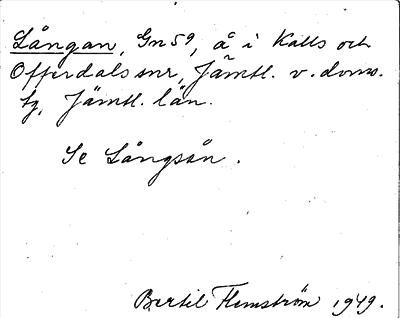 Långan, Gn59, å i Kalls och
Offerdals snr, Jämtl. v. doms.
tg, Jämtl. län.
Se Långsån.
Bertil Flemström 1949.